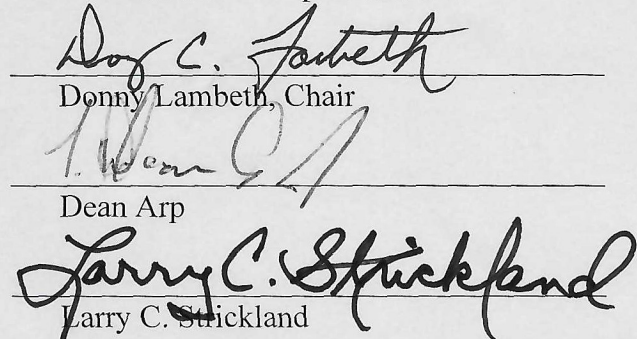 Donny C. Lambeth
Donny Lambeth, Chair
T. Dean Arp
Dean Arp
Larry C. Strickland
Larry C. Strickland